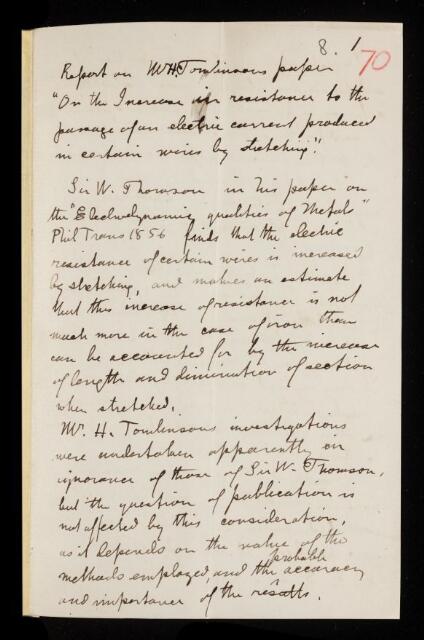 8. 1
70
Report on Mr H Tomlinsons paper
"On the Increase in resistance to the
passage of an electric current produced
in certain wires by stretching".
Sir W. Thomson in his paper on
the "Electrodynamic qualities of Metals"
Phil Trans 1856 finds that the electric
resistance of certain wires is increased
by stretching, and makes an estimate
that this increase of resistance is not
much more in the case of iron than
can be accounted for by the increase
of length and diminution of section
when stretched.
Mr. H. Tomlinsons investigations
were undertaken apparently in
ignorance of those of Sir W. Thomson,
but the question of publication is
not affected by this consideration,
as it depends on the value of the
methods employed, and the probable accuracy
and importance of the results.